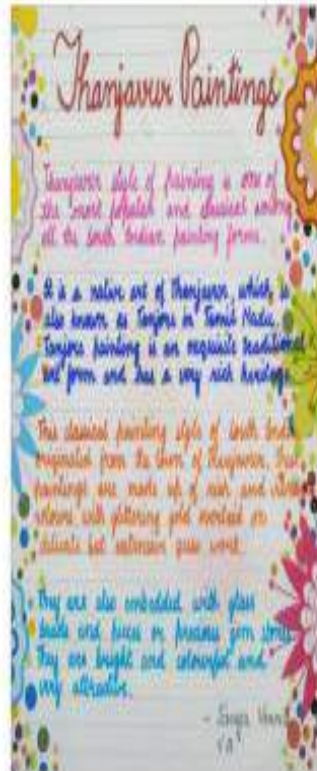 Thanjavur Paintings
Thanjavur style of painting is one of
the most popular and classical among
all the South Indian painting forms.
It is a native art of Thanjavur, which is
also known as Tanjore in Tamil Nadu.
Tanjore painting is an requisite traditional
art form and has a very rich heritage
This classical painting style of South
originated from the town of Thanjavur.
paintings are made up of rich and
colours with glittering gold overlaid on
delicate but extensive gesso work.
They are also embedded with glass
beads and pieces or precious gem stones
They are bright and colourful and
very attractive.